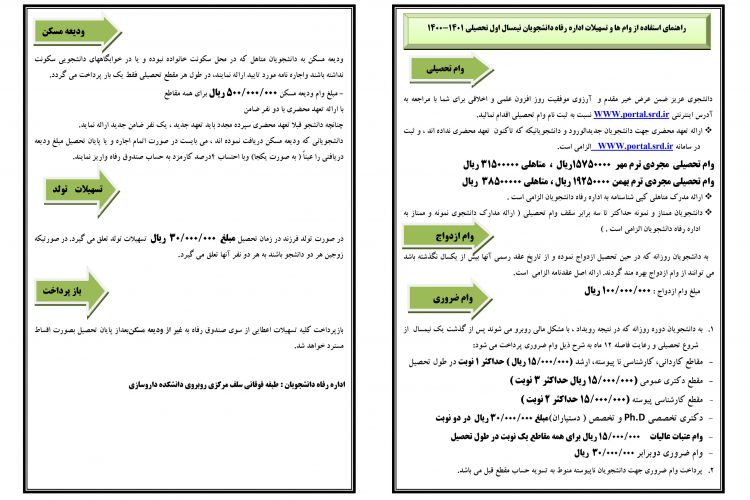 راهنمای استفاده از وام ها و تسهیلات اداره رفاه دانشجویان نیمسال اول تحصیلی ۱۴۰۱-۱۴۰۰
وام تحصیلی
دانشجوی عزیز ضمن عرض خیر مقدم و آرزوی موفقیت روز افزون علمی و اخلاقی برای شما با مراجعه به
آدرس اینترنتی WWW.portal.srd.ir نسبت به ثبت نام وام تحصیلی اقدام نمائید.
❖ ارائه تعهد محضری جهت دانشجویان جدیدالورود و دانشجویانیکه که تاکنون تعهد محضری نداده اند ، و ثبت
در سامانه WWW.portal.srd.ir الزامی است.
وام تحصیلی مجردی ترم مهر ۱۵۷۵۰۰۰۰ریال ، متاهلی ۳۱۵۰۰۰۰۰ ریال
وام تحصیلی مجردی ترم بهمن ۱۹۲۵۰۰۰۰ ریال ، متاهلی ۳۸۵۰۰۰۰۰ ریال
❖ ارائه مدرک متاهلی کپی شناسنامه به اداره رفاه دانشجویان الزامی است .
❖ دانشجویان ممتاز و نمونه حداکثر تا سه برابر سقف وام تحصیلی ( ارائه مدارک دانشجوی نمونه و ممتاز به
اداره رفاه دانشجویان الزامی است . )
وام ازدواج
به دانشجویان روزانه که در حین تحصیل ازدواج نموده و از تاریخ عقد رسمی آنها بیش از یکسال نگذشته باشد
می توانند از وام ازدواج بهره مند گردند. ارائه اصل عقدنامه الزامی است.
مبلغ وام ازدواج : ۱۰۰/۰۰۰/۰۰۰ ریال
وام ضروری
۱. به دانشجویان دوره روزانه که در نتیجه رویداد ، با مشکل مالی روبرو می شوند پس از گذشت یک نیمسال از
شروع تحصیلی و رعایت فاصله ۱۲ ماه به شرح ذیل وام ضروری پرداخت می شود:
- مقاطع کاردانی، کارشناسی نا پیوسته، ارشد (۱۵/۰۰۰/۰۰۰ ریال ) حداکثر ۱ نوبت در طول تحصیل
- مقطع دکتری عمومی (۱۵/۰۰۰/۰۰۰ ریال حداکثر ۳ نوبت )
- مقطع کارشناسی پیوسته (۱۵/۰۰۰/۰۰۰ حداکثر ۲ نوبت )
- دکتری تخصصی Ph.D و تخصص ( دستیاران)مبلغ ۳۰/۰۰۰/۰۰۰ ریال در دو نوبت
- وام عتبات عالیات ۱۵/۰۰۰/۰۰۰ ریال برای همه مقاطع یک نوبت در طول تحصیل
- وام ضروری دوبرابر ۳۰/۰۰۰/۰۰۰ ریال
۲. پرداخت وام ضروری جهت دانشجویان ناپیوسته منوط به تسویه حساب مقطع قبل می باشد.
ودیعه مسکن
ودیعه مسکن به دانشجویان متاهل که در محل سکونت خانواده نبوده و یا در خوابگاههای دانشجویی سکونت
نداشته باشند واجاره نامه مورد تایید ارائه نمایند، در طول هر مقطع تحصیلی فقط یک بار پرداخت می گردد.
- مبلغ وام ودیعه مسکن ۵۰۰/۰۰۰/۰۰۰ ریال برای همه مقاطع
با ارائه تعهد محضری با دو نفر ضامن
چنانچه دانشجو قبلا تعهد محضری سپرده مجدد باید تعهد جدید ، یک نفر ضامن جدید ارائه نماید.
دانشجویانی که ودیعه مسکن دریافت نموده اند ، می بایست در صورت اتمام اجاره و یا پایان تحصیل مبلغ ودیعه
دریافتی را عیناً ( به صورت یکجا) وبا احتساب ۴درصد کارمزد به حساب صندوق رفاه واریز نمایند.
تسهیلات تولد
در صورت تولد فرزند در زمان تحصیل مبلغ ۳۰/۰۰۰/۰۰۰ ریال تسهیلات تولد تعلق می گیرد. در صورتیکه
زوجین هر دو دانشجو باشند به هر دو نفر آنها تعلق می گیرد.
باز پرداخت
بازپرداخت کلیه تسهیلات اعطایی از سوی صندوق رفاه به غیر از ودیعه مسکن‌بعداز پایان تحصیل بصورت اقساط
مسترد خواهد شد.
اداره رفاه دانشجویان : طبقه فوقانی سلف مرکزی روبروی دانشکده داروسازی